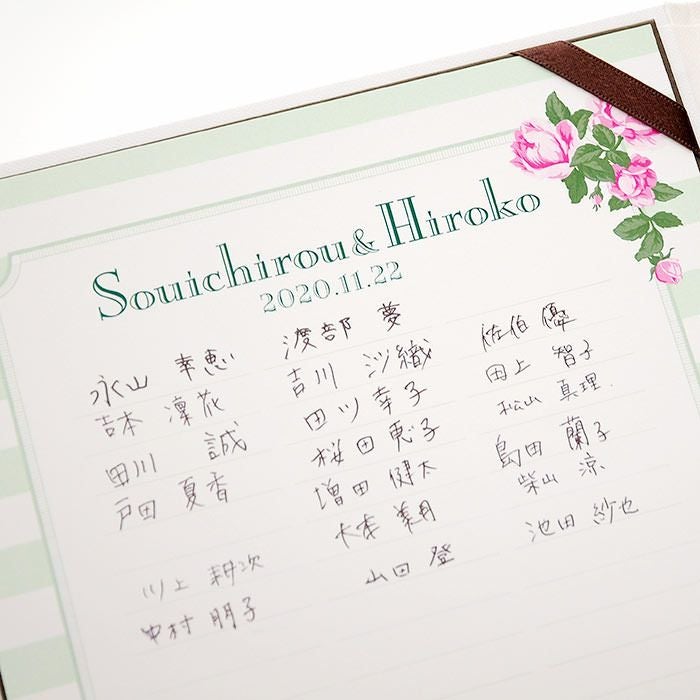 Souichirou & Hiroko
2020.11.22
永山 幸恵 渡部 夢 佐伯 優
吉本 凜花 吉川 沙織 田上 智子
田川 誠 田辺 幸子 松山 真理
戸田 夏香 桜田 恵子 島田 蘭子
増田 健太 柴山 涼
川上 耕次 大本 美月 池田 紗也
中村 朋子 山田 登